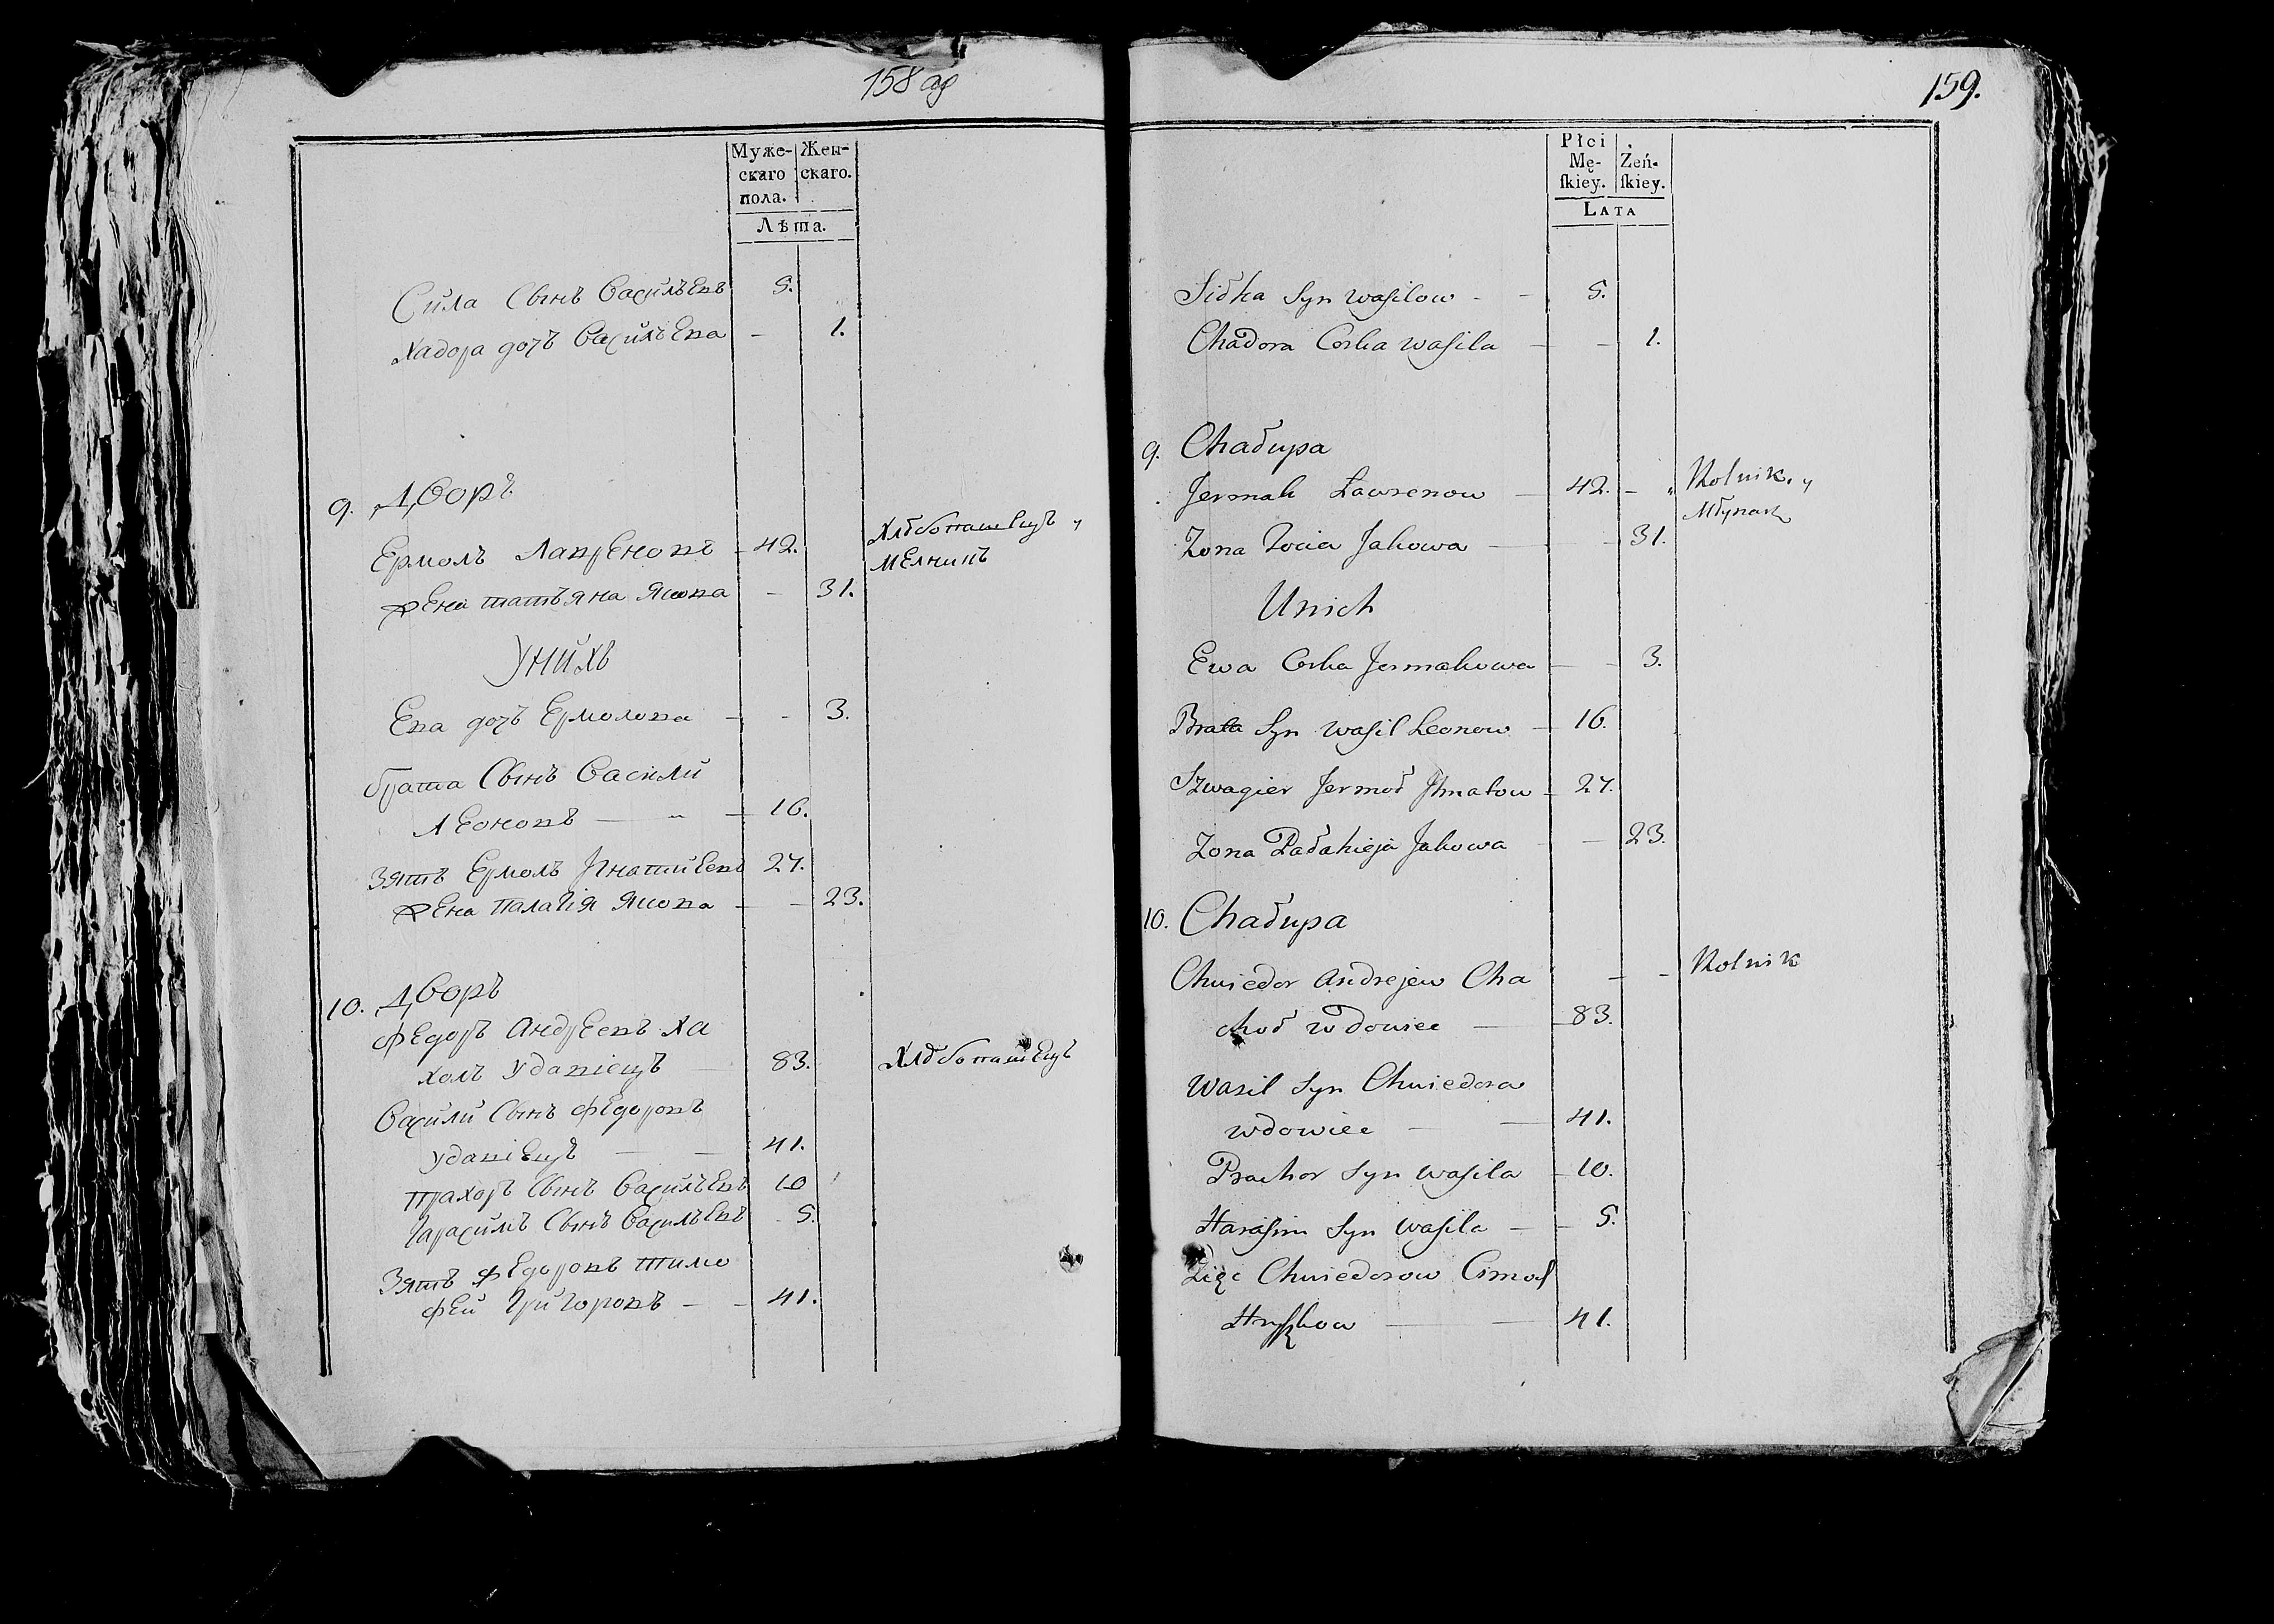 158 об
Муже-
скаго
пола.
Жен-
скаго.
Лѣта.
Сила Сынъ Васильевъ 5.
Хадора дочъ Васильева — 1.
9. Дворъ
Ермолъ Лавреновъ — 42. Хлѣбопашецъ и
мелникъ
жена татьяна Якова — 31.
У нихъ
Ева дочъ Ермолова — — 3.
брата Сынъ Василий
Леоновъ — — 16.
Зять Ермолъ Игнатиевъ 27.
жена Палагія Якова — — 23.
10. Дворъ
Федоръ Андреевъ Ха
холъ удавіецъ — 83. Хлѣбопашецъ
Василий Сынъ Федоровъ
удавіецъ — — 41.
Прахоръ Сынъ Васильевъ 10
Гарасимъ Сынъ Васильевъ 5.
Зять Федоровъ тимо
фей Григоровъ — — 41.
159.
Płci
Mę-
ſkiey.
Żeń-
ſkiey.
Lata
Siłka Syn Wasilow - — 5.
Chadora Corka Wasila — — 1.
9. Chałupa
Jermak Lawrenow — 42. — Rolnik, y
Młynarz
Zona Tocia Jakowa — — 31.
Unich
Ewa Corka Jermakowa — — 3.
Brata Syn Wasil Leonow — 16.
Szwagier Jermoł Ihnatow — 27.
Zona Pałahieja Jakowa — 23.
10. Chałupa
Chwiedor Andrejew Cha — — Rolnik
choł wdowiec — 83.
Wasil Syn Chwiedora
wdowiec — — 41.
Prachor Syn Wasila — 10.
Harasim Syn Wasila — 5.
Zięc Chwiedorow Cimof
Hryszkow — — 41.